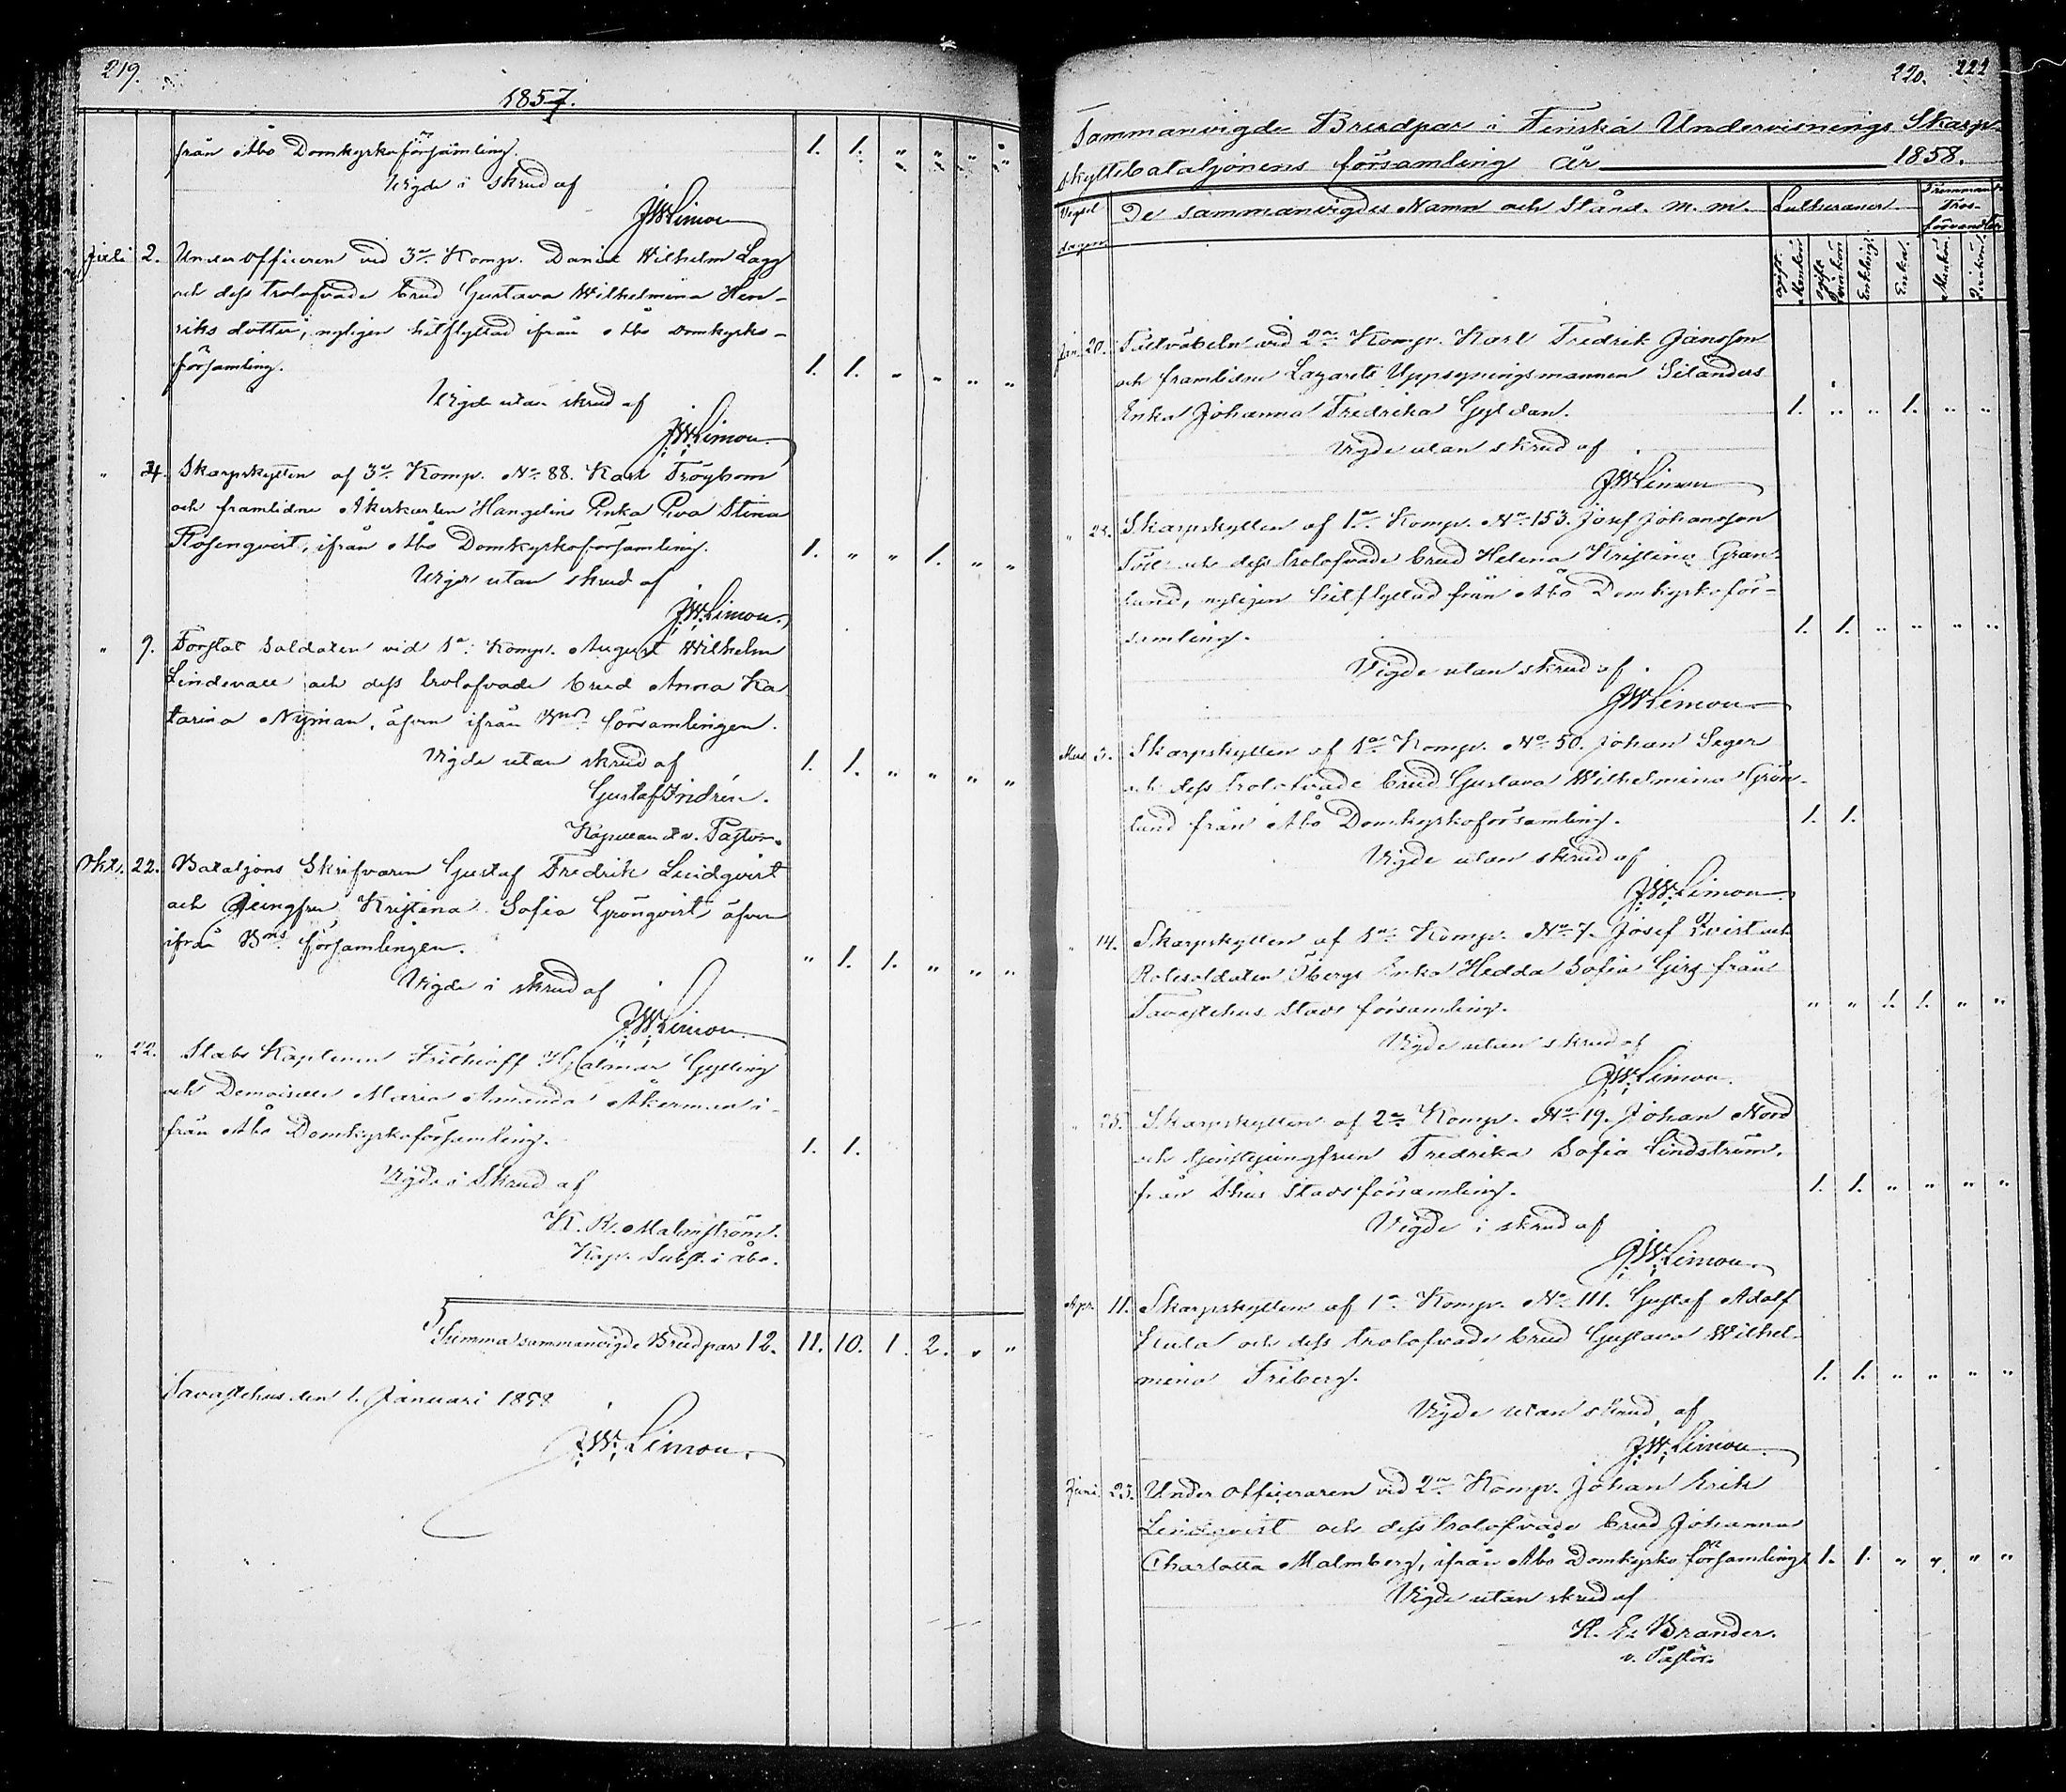 219.
1857.
från Åbo Domkyrkoförsamling. 1. 1. " " " "
Vigde i skrud af
JWLimon
Juli 2. Under officeren vid 3e Komp. Daniel Wilhelm Lagg
och dess trolofvade brud Gustava Wilhelmina Hen-
riks dotter, nyligen hitflyttad ifrån Åbo Domkyrko-
församling. 1. 1. " " " "
Vigde utan skrud af
JWLimon
" 4. Skarpskytten af 3e Komp. No 88. Karl Tröybom
och framlidne Åkerkarlen Hangelins Enka Eva Stina
Rosenqvist, ifrån Åbo Domkyrkoförsamling. 1. " " 1. " "
Vigde utan skrud af
JWLimon.
" 9. Forstat Soldaten vid 1a Komp. August Wilhelm
Lindevall och dess trolofvade brud Anna Ka
tarina Nyman, äfven ifrån Bns församlingen.
Vigde utan skrud af 1. 1. " " " "
Gustaf Indrén.
Kapellan o v. Pastor.
Okt. 22. Bataljons Skrifvaren Gustaf Fredrik Lindqvist
och Jungfru Kristina Sofia Grönqvist äfven
ifrån Bns församlingen. " 1. 1. " " "
Vigde i skrud af
JWLimon
" 22. Stabs Kaptenen Frithioff Hjalmar Gylling
och Demoiselle Maria Amanda Åkerman i-
från Åbo Domkyrkoförsamling. 1. 1.
Vigde i Skrud af
K. R. Malmström.
Kap. Subst. i Åbo.
Summa sammanvigde Brudpar 12. 11. 10. 1. 2. " "
Tavastehus den 1. Januari 1858
J.W. Limon.
220. 222
Sammanvigde Brudpar i Finska Undervisnings Skarp-
skyttebataljonens församling År 1858.
Vigsel dagen De sammanvigdes Namn och Stånd. m. m. Lutheraner Främmande Tros-förvandter
ogift Mankön ogift qvinkön Enkling Enka Mankön Qvinkön
Jan. 20. Fältväbeln vid 2a Komp. Karl Fredrik Jansson
och framlidne Lazarets Uppsyningsmannen Silanders
Enka Johanna Fredrika Gyldan. 1. " " 1. " "
Vigde utan skrud af
JWLimon
" 24. Skarpskytten af 1a Komp. No 153. Josef Johansson
och dess trolofvade brud Helena Kristina Gran-
lund, nyligen hitflyttad från Åbo Domkyrkoför-
samling. 1. 1. " " " "
Vigde utan skrud af
JWLimon
Mars 5. Skarpskytten af 1a Komp. No 50. Johan Seger
och dess trolofvade brud Gustava Wilhelmina Grön-
lund från Åbo Domkyrkoförsamling. 1. 1.
Vigde utan skrud af
JWLimon
" 14. Skarpskytten af 1a Komp. No 7. Josef Qvist och
Rotesoldaten Öbergs Enka Hedda Sofia Girs från
Tavastehus Stads församling. " " 1. 1. " "
Vigde utan skrud af
JWLimon.
" 25. Skarpskytten af 2a Komp. No 19. Johan Nord
och tjenstejungfrun Fredrika Sofia Lindström,
från Thus Stadsförsamling. 1. 1. " " " "
Vigde i skrud af
JWLimon
Apr. 11. Skarpskytten af 1a Komp. No 111. Gustaf Adolf
och dess trolofvade brud Gustava Wilhel-
mina Friberg. 1. 1. " " " "
Vigde utan skrud af
JWLimon
Juni 25. Under officeraren vid 2a Komp. Johan Erik
Lindqvist och dess trolofvade brud Johanna
Charlotta Malmberg, ifrån Åbo Domkyrko församling 1. 1. " " " "
Vigde utan skrud af
H. E. Brander.
v. Pastor.